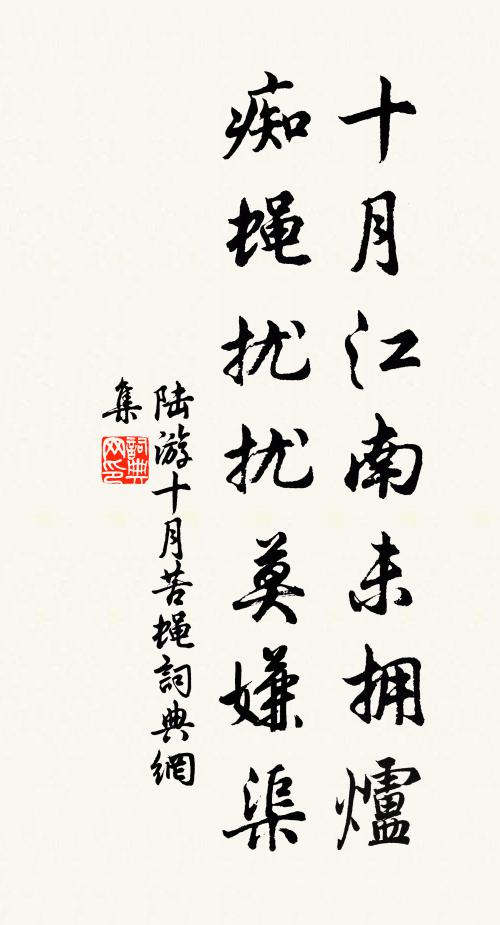 十月江南未拥爐
痴蝇扰扰莫嫌渠
陆游十月苦蝇詞典網
集
詞典
网印